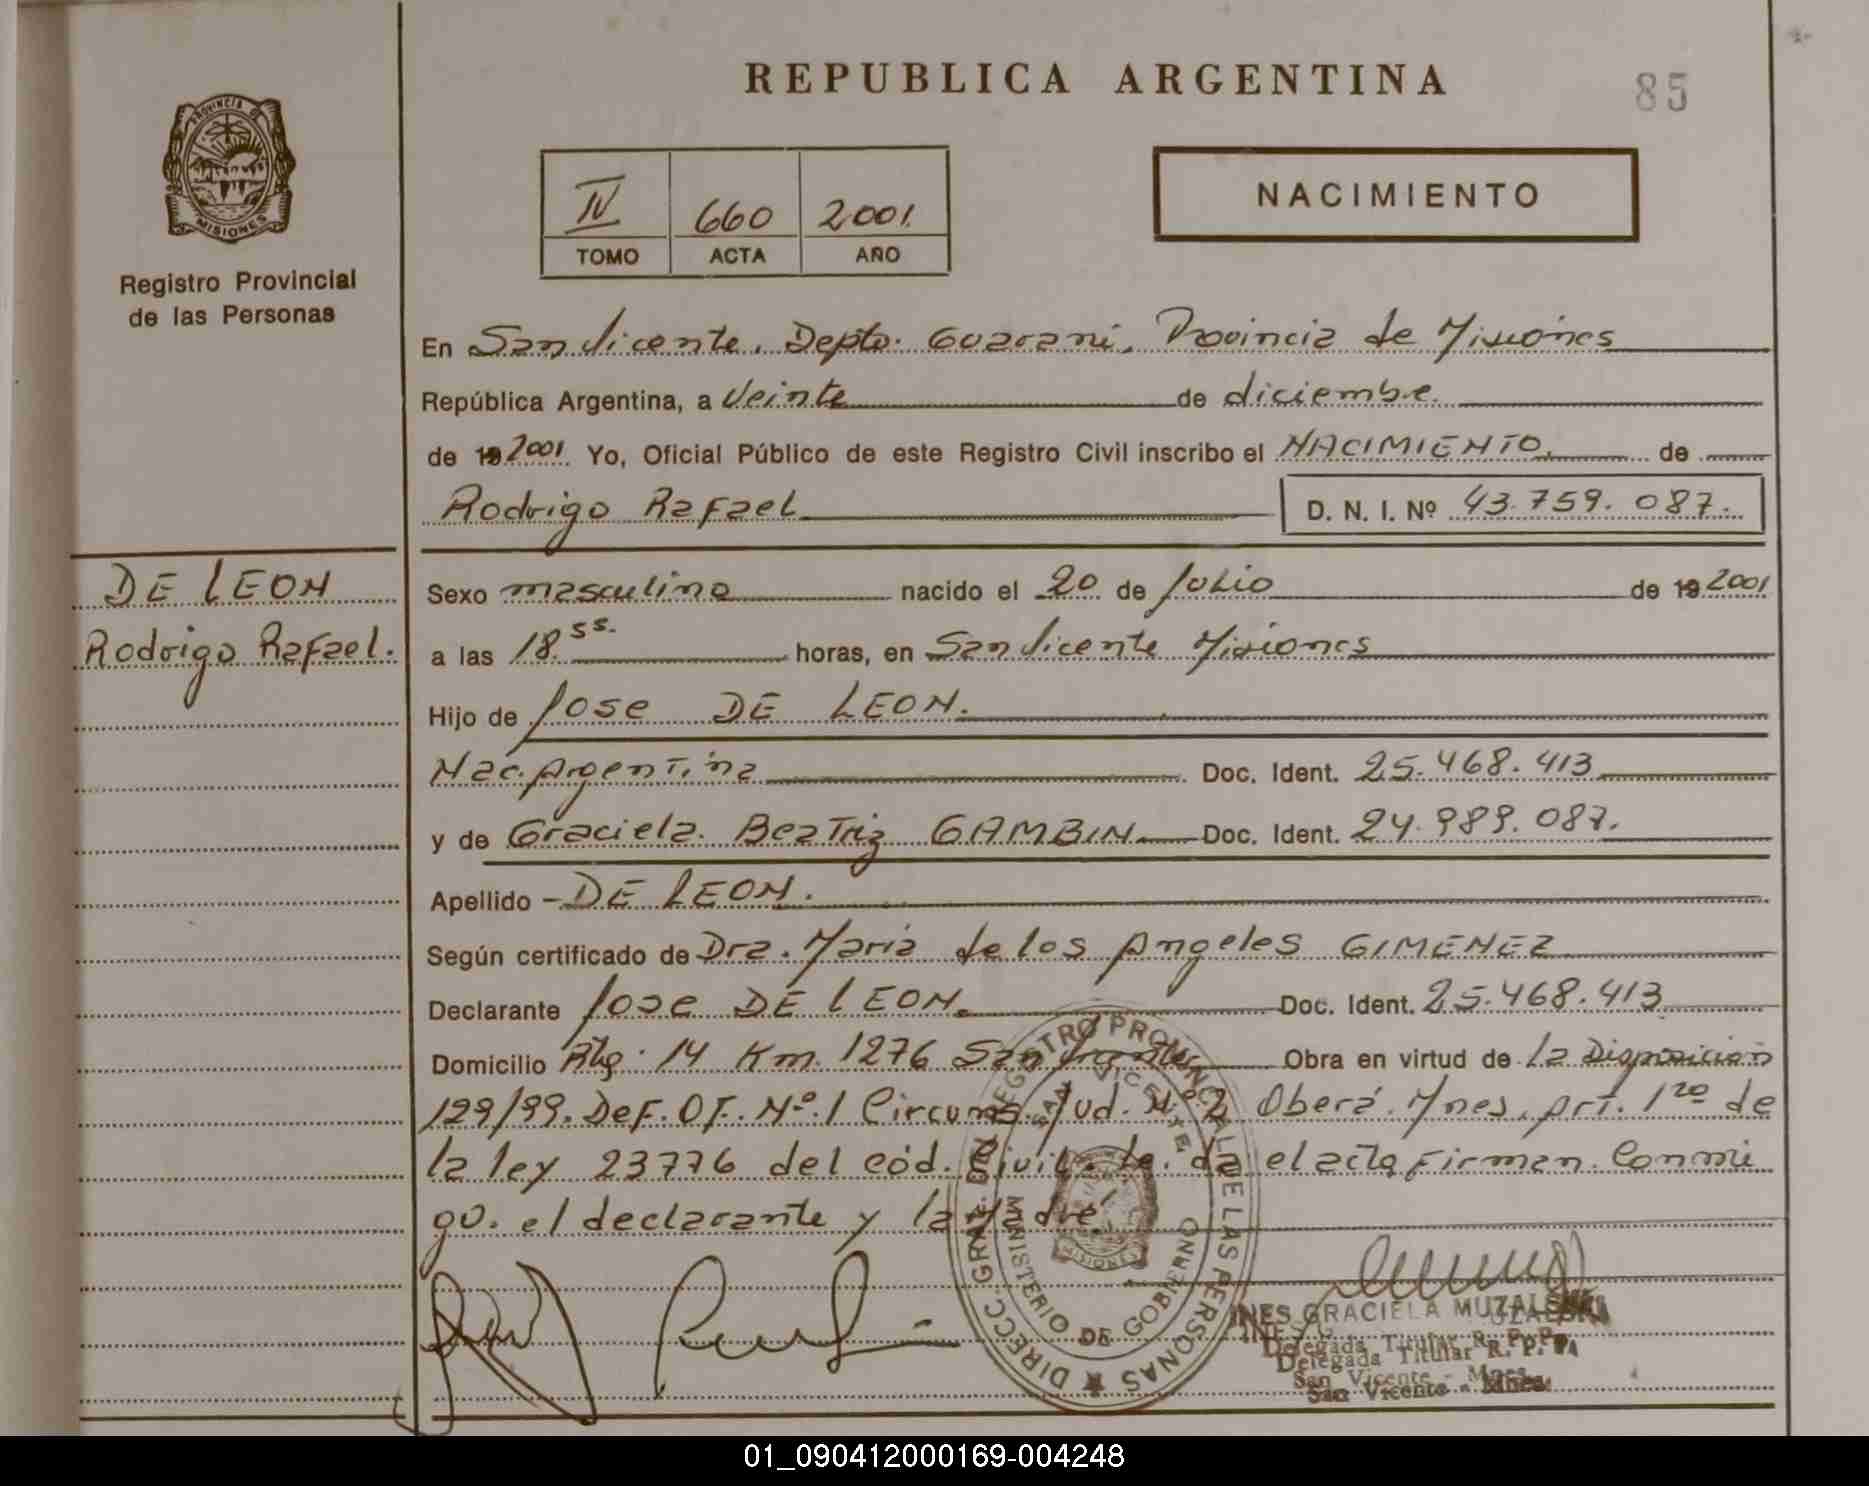 REPUBLICA ARGENTINA
85
PROVINCIA DE
MISIONES
Registro Provincial
de las Personas
IV 660 2001.
TOMO ACTA AÑO
NACIMIENTO
En San Vicente. Depto. Guarani. Provincia de Misiones
República Argentina, a Veinte de diciembre.
de 19 2001. Yo, Oficial Público de este Registro Civil inscribo el NACIMIENTO. de
Rodrigo Rafael D. N. I. Nº 43.759.087.
DE LEON
Rodrigo Rafael.
Sexo masculino nacido el 20 de Julio de 19 2001
a las 18.55. horas, en San Vicente Misiones
Hijo de Jose DE LEON.
Nac. Argentina Doc. Ident. 25.468.413
y de Graciela. Beatriz GAMBIN. Doc. Ident. 24.989.087.
Apellido - DE LEON.
Según certificado de Dra. Maria de los Angeles GIMENEZ
Declarante Jose DE LEON. Doc. Ident. 25.468.413
Domicilio Rta. 14 Km. 1276 San Vicente Obra en virtud de la Disposicion
129/99. Def. Of. Nº. 1 Circuns. Jud. Nº 2 Oberá. Mnes, Art. 1ro de
la ley 23776 del Cód. Civil. Le. da el acta Firman. Conmi
go. el declarante y la Madre.
DIRECC. GRAL. DEL REGISTRO PROVINCIAL DE LAS PERSONAS
SAN VICENTE
MINISTERIO DE GOBIERNO
MISIONES
INES GRACIELA
Delegada Titular R. P. P.
San Vicente - Mnes.
01_090412000169-004248